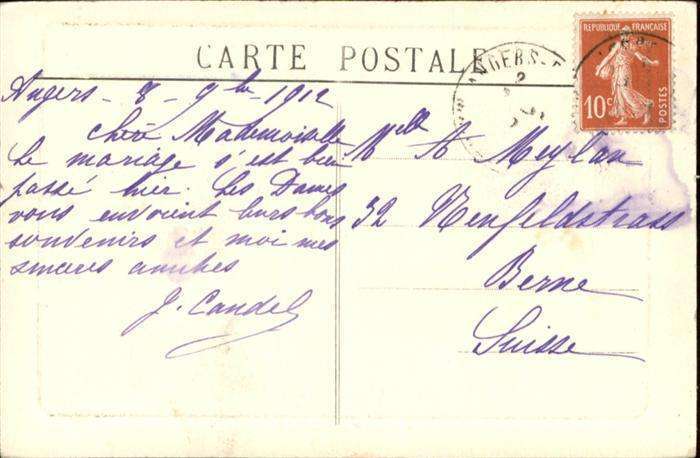 CARTE POSTALE
REPUBLIQUE FRANÇAISE
10c
POSTES
ANGERS
Angers - 8 - 9bre 1912
Chère Mademoiselle
Le mariage s'est bien
passé hier. Les Dames
vous envoient leurs bons
souvenirs et moi mes
sinceres amitiés
J. Candel
Melle A Meylan
32 Neufeldstrass
Berne
Suisse